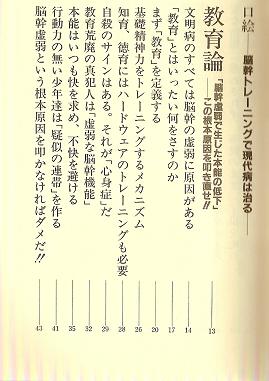 口絵 脳幹トレーニングで現代病は治る——
教育論
「脳幹虚弱で生じた本能の低下」
——この根本原因を叩き直せ!! 13
文明病のすべては脳幹の虚弱に原因がある 14
「教育」とはいったい何をさすのか 17
まず「教育」を定義する 20
基礎精神力をトレーニングするメカニズム 26
知育、徳育にはハードウェアのトレーニングも必要 28
自殺のサインはある。それが「心身症」だ 29
教育荒廃の真犯人は「虚弱な脳幹機能」 32
本能はいつも快を求め、不快を避ける 35
行動力の無い少年達は「疑似の連帯」を作る 41
脳幹虚弱という根本原因を叩かなければダメだ!! 43